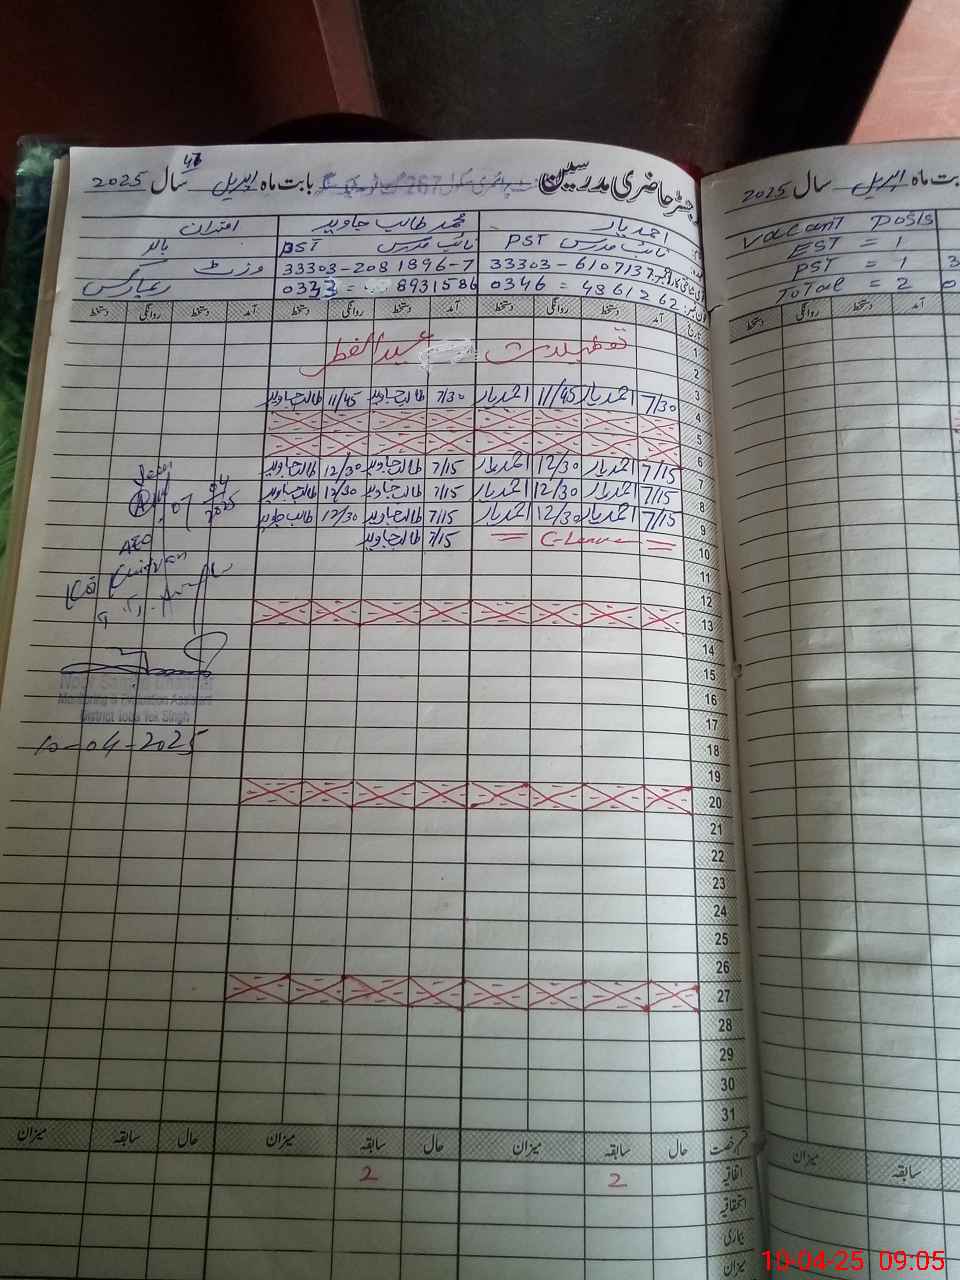 رجسٹر حاضری مدرسین بابت ماہ اپریل سال 2025
47
احمد یار
محمد طالب جاوید
افسران
نائب مدرس PST
نائب مدرس PST
33303-6107137-
33303-2081896-7
وزٹ
0346 = 4861262
8931586
ریمارکس
آمد دستخط روانگی دستخط آمد دستخط روانگی دستخط آمد دستخط روانگی دستخط
1 تعطیلات عید الفطر
2
3 7/30 احمد یار 11/45 احمد یار 7/30 طالب جاوید 11/45 طالب جاوید
4
5
6 7/15 احمد یار 12/30 احمد یار 7/15 طالب جاوید 12/30 طالب جاوید
7 7/15 احمد یار 12/30 احمد یار 7/15 طالب جاوید 12/30 طالب جاوید
8 7/15 احمد یار 12/30 احمد یار 7/15 طالب جاوید 12/30 طالب جاوید
9 C-Leave 7/15 طالب جاوید
10
11
12
13
14
15
16
17
18
19
20
21
22
23
24
25
26
27
28
29
30
31
07 04 2025
AEO
Monitoring & Evaluation Assistant
District Toba Tek Singh
10-04-2025
قسم رخصت حال سابقہ میزان حال سابقہ میزان حال سابقہ میزان
اتفاقیہ 2 2
استحقاقیہ
بیماری
میزان
بابت ماہ اپریل سال 2025
Vacant Posts
EST = 1
PST = 1
Total = 2
آمد دستخط روانگی دستخط
سابقہ میزان
10-04-25 09:05